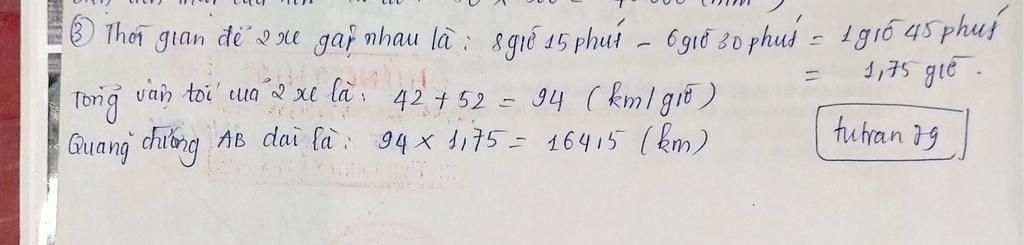 ③ Thời gian để 2 xe gặp nhau là : 8giờ 15phút - 6giờ 30phút = 1giờ 45phút
= 1,75 giờ.
Tổng vận tốc của 2 xe là: 42 + 52 = 94 (km/giờ)
Quãng đường AB dài là: 94 × 1,75 = 164,5 (km)
tutran 79